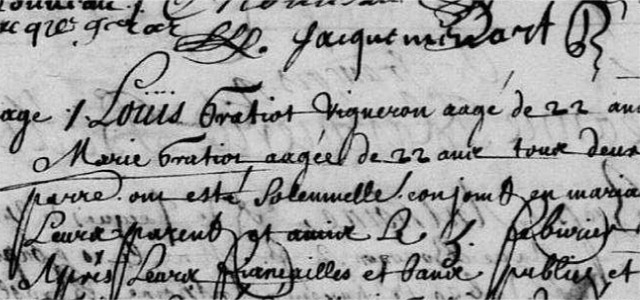 Jacqueminart
age 1 Louis Gratiot Vigneron aagé de 22 ans
Marie Gratiot aagée de 22 ans tous deux
parre. ont esté Solennelle conjoint en maria
Leurs parent et amis Le 3. febvrier
Apres Leurs fiancailles et bans publies et